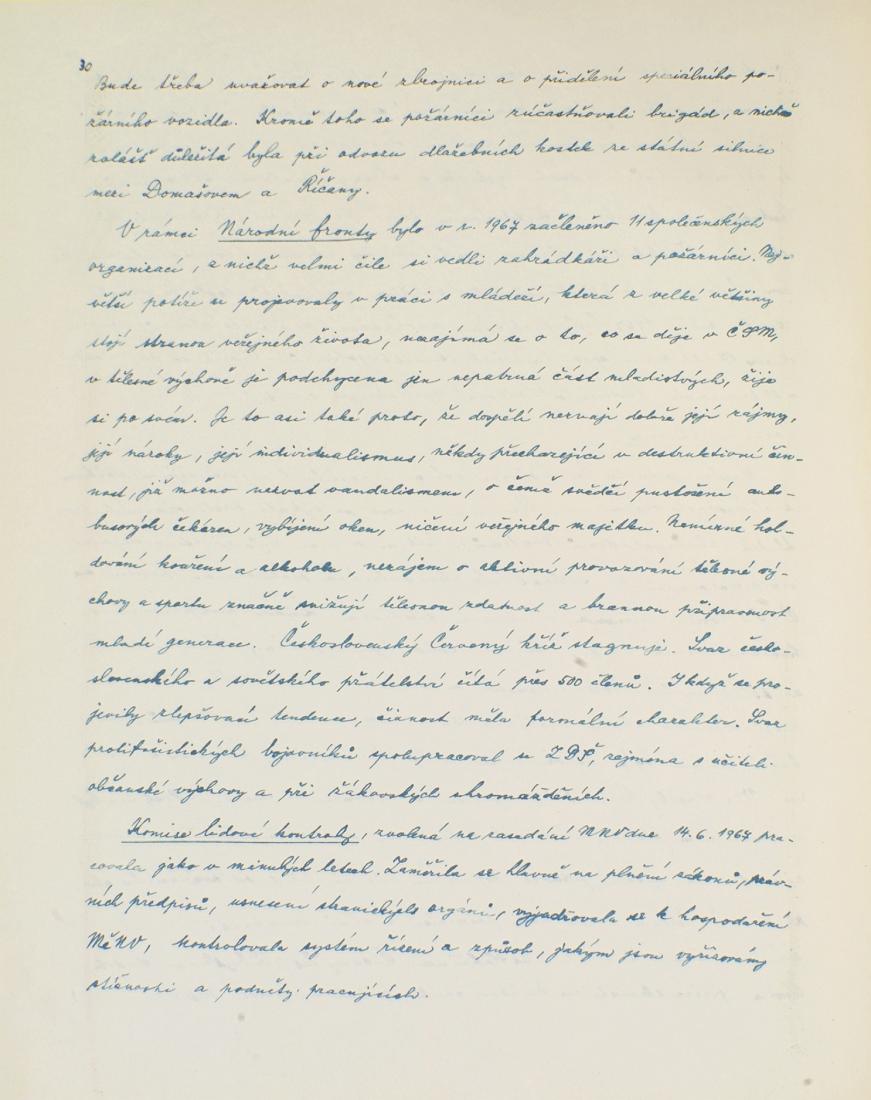 30
Bude třeba uvažovat o nové zbrojnici a o přidělení speciálního po-
žárního vozidla. Kromě toho se požárníci zúčastňovali brigád, z nichž
zvlášť důležitá byla při odvozu dlažebních kostek ze státní silnice
mezi Domašovem a Říčany.
V rámci Národní fronty bylo v r. 1967 začleněno 11 společenských
organizací, z nichž velmi čile si vedli zahrádkáři a požárníci. Nej-
větší potíže se projevovaly v práci s mládeží, která z velké většiny
stojí stranou veřejného života, nezajímá se o to, co se děje v ČSM,
v tělesné výchově je podchycena jen nepatrná část mladistvých, žije
si po svém. Je to asi také proto, že dospělí neznají dobře její zájmy,
její nároky, její individualismus, někdy přecházející v destruktivní čin-
nost, již možno nazvat vandalismem, o čemž svědčí pustošení auto-
busových čekáren, vybíjení oken, ničení veřejného majetku. Nemírné hol-
dování kouření a alkoholu, nezájem o aktivní provozování tělesné vý-
chovy a sportu značně snižují tělesnou zdatnost a brannou připravenost
mladé generace. Československý Červený kříž stagnuje. Svaz česko-
slovenského a sovětského přátelství čítá přes 500 členů. I když se pro-
jevily zlepšovací tendence, činnost měla formální charakter. Svaz
protifašistických bojovníků spolupracoval se ZDŠ, zejména s učiteli
občanské výchovy a při žákovských shromážděních.
Komise lidové kontroly, zvolená na zasedání NNV dne 14.6.1967 pra-
covala jako v minulých letech. Zaměřila se hlavně na plnění zákonů, práv-
ních předpisů, usnesení stranických orgánů, vyjadřovala se k hospodaření
MěNV, kontrolovala systém řízení a způsob, jakým jsou vyřizovány
stížnosti a podněty pracujících.